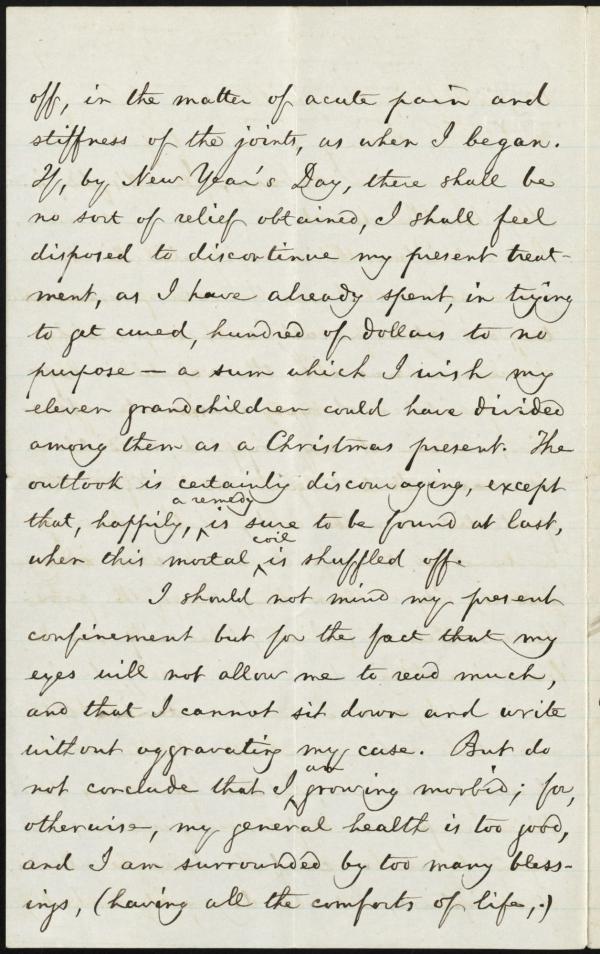 off, in the matter of acute pain and
stiffness of the joints, as when I began.
If, by New Year's Day, there shall be
no sort of relief obtained, I shall feel
disposed to discontinue my present treat-
ment, as I have already spent, in trying
to get cured, hundred of dollars to no
purpose — a sum which I wish my
eleven grandchildren could have divided
among them as a Christmas present. The
outlook is certainly discouraging, except
a remedy
that, happily, ‸ is sure to be found at last,
coil
when this mortal ‸ is shuffled off.
I should not mind my present
confinement but for the fact that my
eyes will not allow me to read much,
and that I cannot sit down and write
without aggravating my case. But do
am
not conclude that I ‸ growing morbid; for,
otherwise, my general health is too good,
and I am surrounded by too many bless-
ings, (having all the comforts of life,)